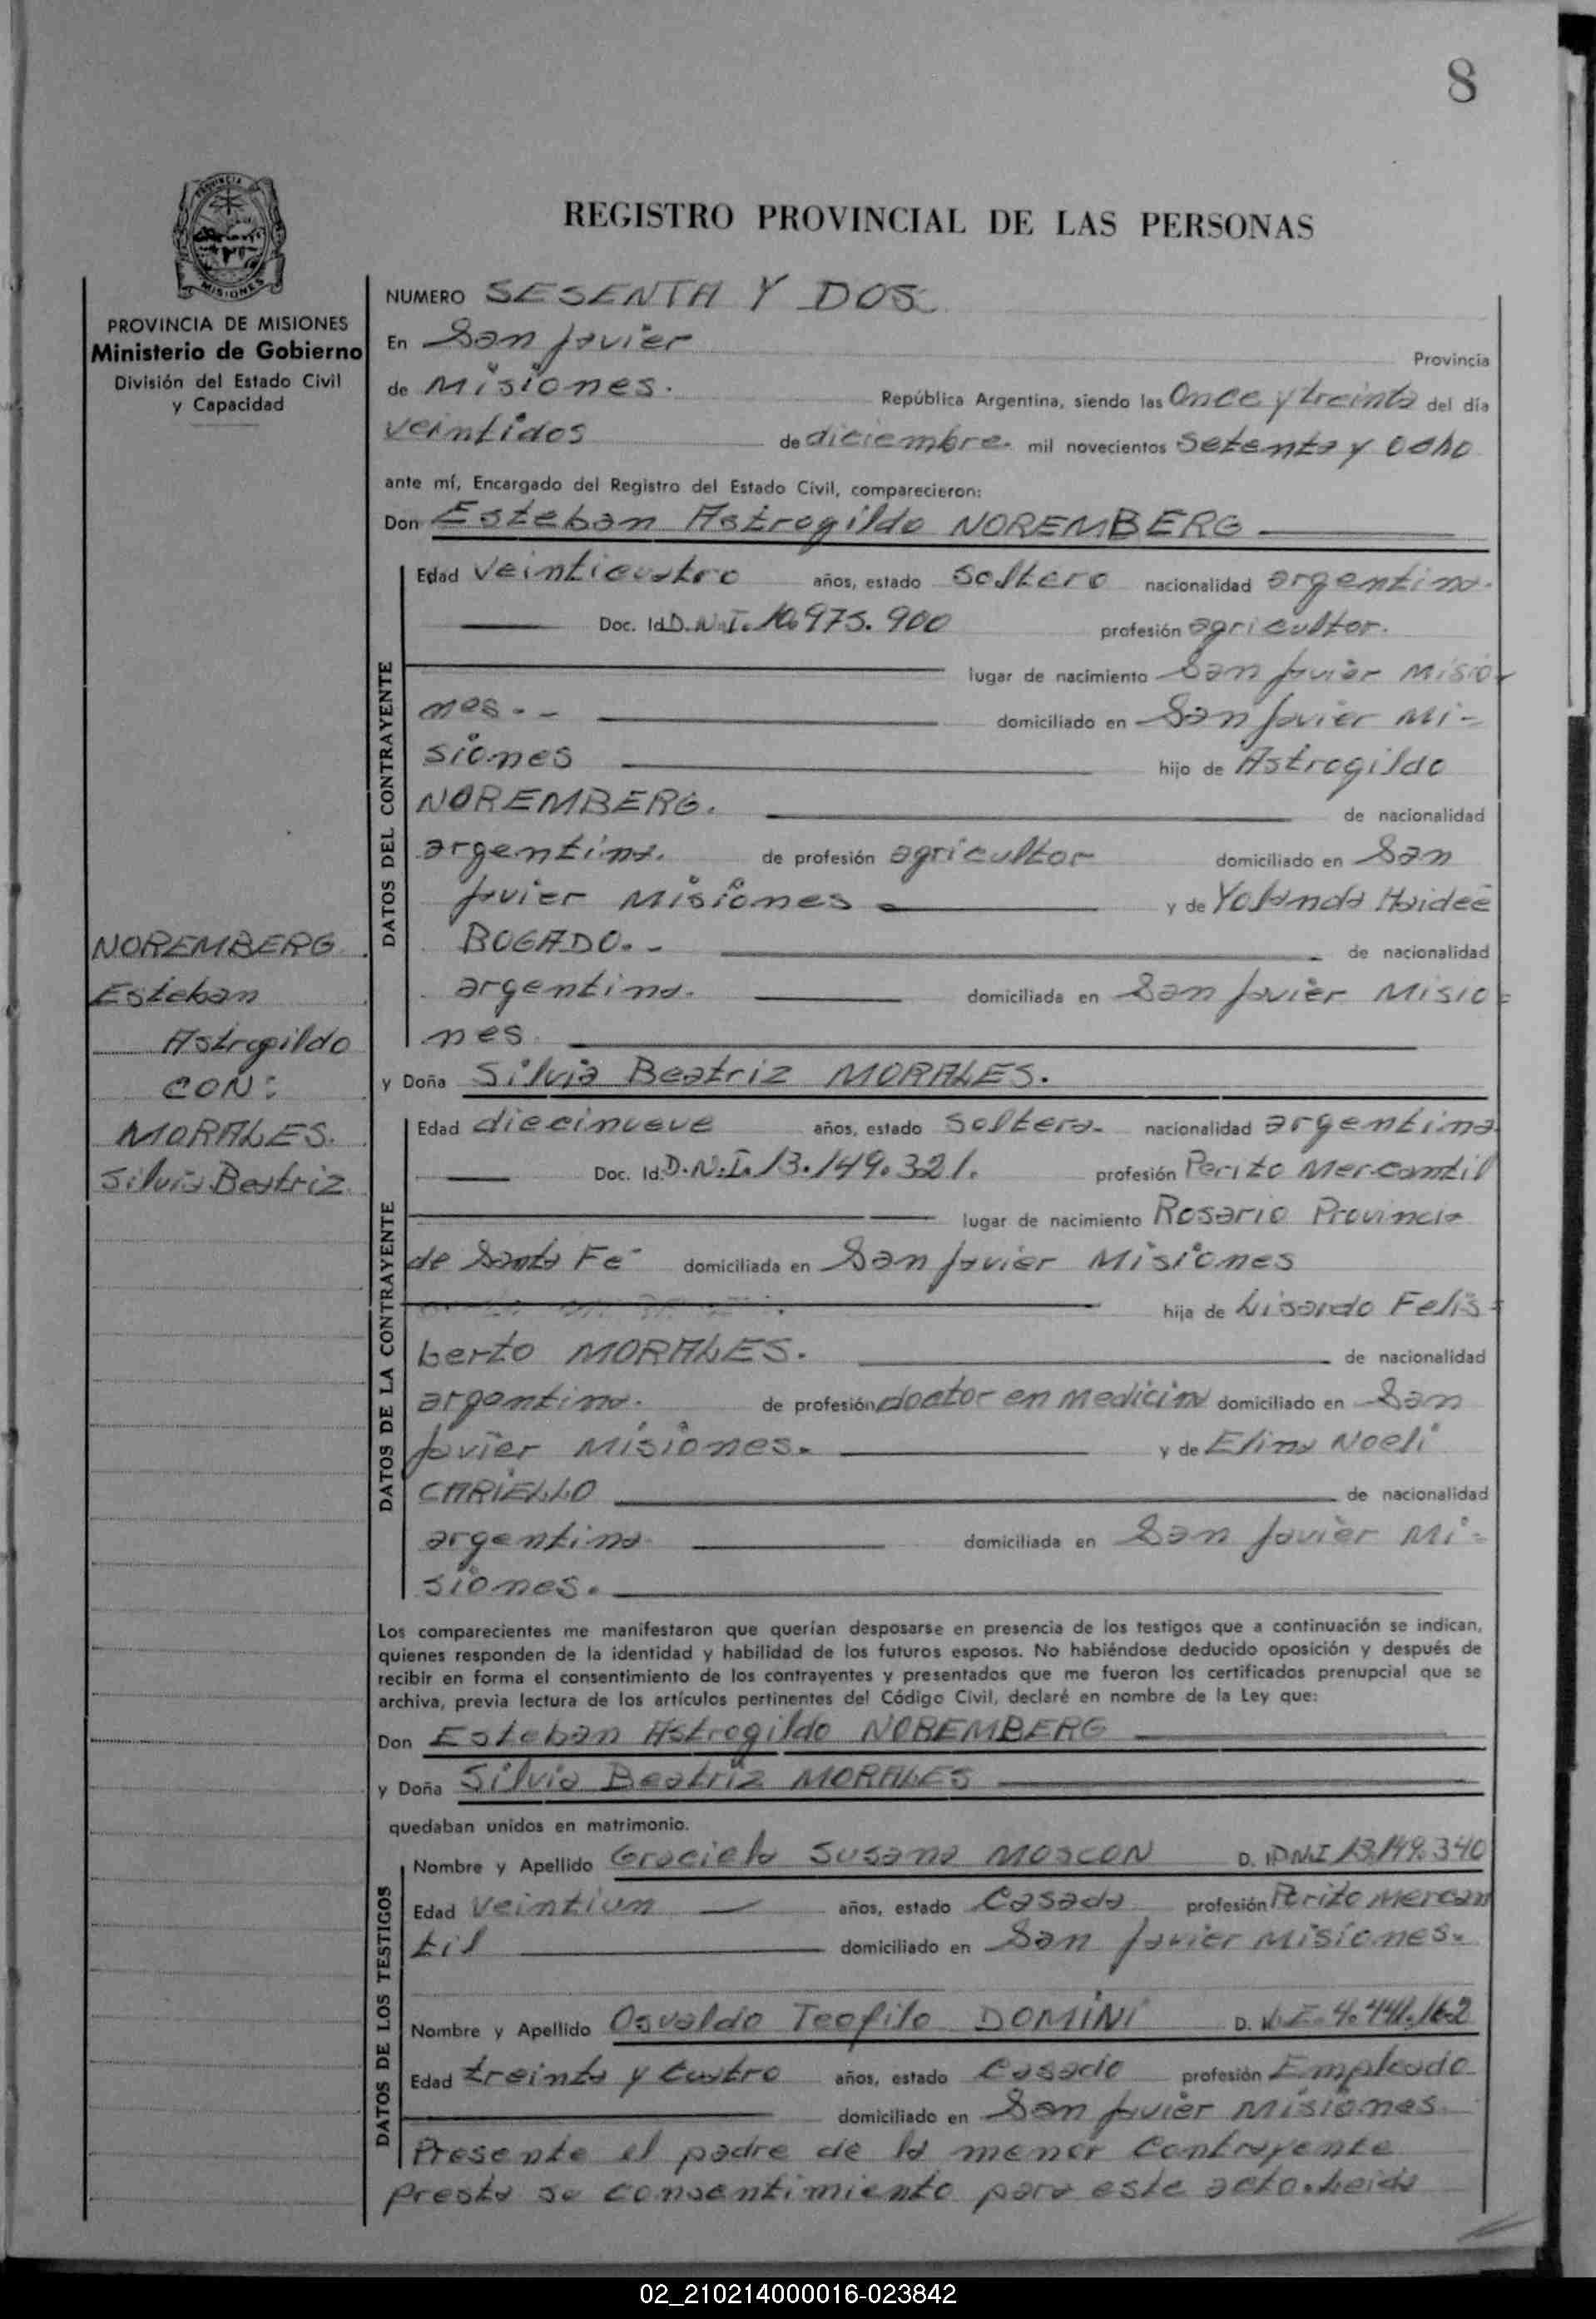 8
PROVINCIA
MISIONES
PROVINCIA DE MISIONES
Ministerio de Gobierno
División del Estado Civil
y Capacidad
REGISTRO PROVINCIAL DE LAS PERSONAS
NUMERO SESENTA Y DOS
En San Javier Provincia
de Misiones. República Argentina, siendo las Once y treinta del día
veintidos de diciembre. mil novecientos setenta y ocho
ante mí, Encargado del Registro del Estado Civil, comparecieron:
Don Esteban Astrogildo NOREMBERG
DATOS DEL CONTRAYENTE
Edad veinticuatro años, estado soltero nacionalidad argentina.
Doc. Id. D.N.I. 10.975.900 profesión agricultor.
lugar de nacimiento San Javier Misio-
nes.- domiciliado en San Javier Mi-
siones hijo de Astrogildo
NOREMBERG. de nacionalidad
argentina. de profesión agricultor domiciliado en San
Javier Misiones y de Yolanda Haideé
BOGADO.- de nacionalidad
argentina. domiciliada en San Javier Misio=
nes.
NOREMBERG
Esteban
Astrogildo
CON:
MORALES.
Silvia Beatriz.
y Doña Silvia Beatriz MORALES.
DATOS DE LA CONTRAYENTE
Edad diecinueve años, estado soltera. nacionalidad argentina
Doc. Id. D.N.I. 13.149.321. profesión Perito Mercantil
lugar de nacimiento Rosario Provincia
de Santa Fe domiciliada en San Javier Misiones
hija de Lisardo Felis=
berto MORALES. de nacionalidad
argentina. de profesión doctor en medicina domiciliado en San
Javier Misiones. y de Elina Noeli
CARIELLO de nacionalidad
argentina. domiciliada en San Javier Mi=
siones.
Los comparecientes me manifestaron que querían desposarse en presencia de los testigos que a continuación se indican,
quienes responden de la identidad y habilidad de los futuros esposos. No habiéndose deducido oposición y después de
recibir en forma el consentimiento de los contrayentes y presentados que me fueron los certificados prenupcial que se
archiva, previa lectura de los artículos pertinentes del Código Civil, declaré en nombre de la Ley que:
Don Esteban Astrogildo NOREMBERG
y Doña Silvia Beatriz MORALES
quedaban unidos en matrimonio.
DATOS DE LOS TESTIGOS
Nombre y Apellido Graciela Susana MOSCON D. I. DNI 13.149.340
Edad veintiun años, estado Casada profesión Perito Mercan
til domiciliado en San Javier Misiones.
Nombre y Apellido Osvaldo Teofilo DOMINI D. L.E.
Edad treinta y cuatro años, estado Casado profesión Empleado
domiciliado en San Javier Misiones.
Presente el padre de la menor contrayente
presta su consentimiento para este acto. Leida
02_210214000016-023842